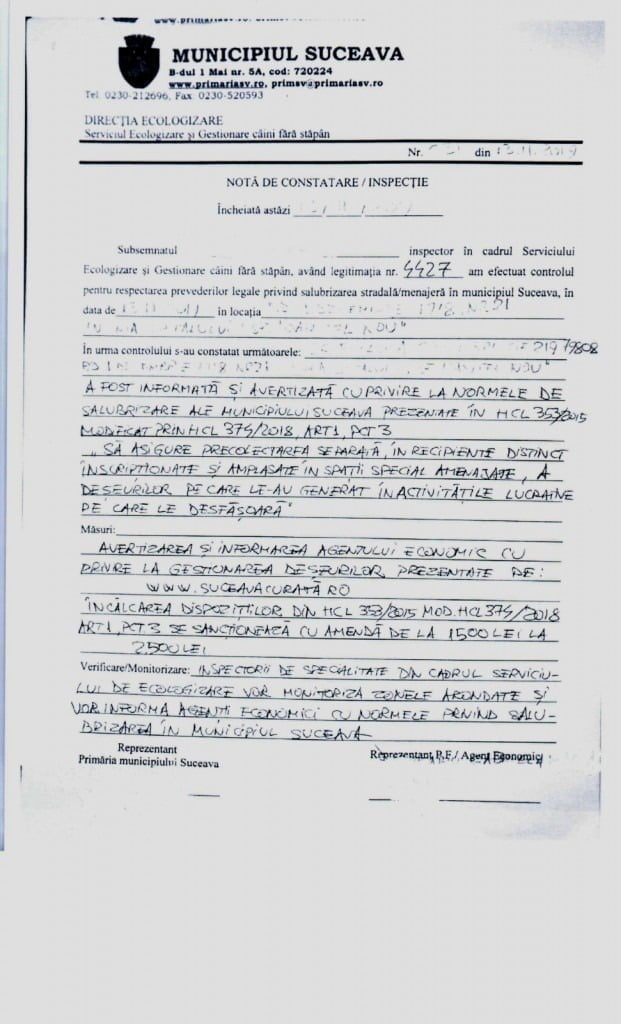 www.primariasv.ro
MUNICIPIUL SUCEAVA
B-dul 1 Mai nr. 5A, cod: 720224
www.primariasv.ro, primsv@primariasv.ro
Tel. 0230-212696, Fax: 0230-520593
DIRECŢIA ECOLOGIZARE
Serviciul Ecologizare şi Gestionare câini fără stăpân
Nr. din 13.11.2019
NOTĂ DE CONSTATARE / INSPECŢIE
Încheiată astăzi
Subsemnatul inspector în cadrul Serviciului
Ecologizare şi Gestionare câini fără stăpân, având legitimaţia nr. 4427 am efectuat controlul
pentru respectarea prevederilor legale privind salubrizarea stradală/menajeră în municipiul Suceava, în
data de în locaţia 1918, NR21
NOU"
În urma controlului s-au constatat următoarele: 21979808
NOU"
A FOST INFORMATĂ ȘI AVERTIZATĂ CU PRIVIRE LA NORMELE DE
SALUBRIZARE ALE MUNICIPIULUI SUCEAVA PREZENTATE ÎN HCL 353/2015
MODIFICAT PRIN HCL 374/2018, ART1, PCT 3
„ SĂ ASIGURE PRECOLECTAREA SEPARATĂ, ÎN RECIPIENTE DISTINCT
ÎNSCRIPȚIONATE ȘI AMPLASATE ÎN SPAȚII SPECIAL AMENAJATE, A
DEȘEURILOR PE CARE LE-AU GENERAT ÎN ACTIVITĂȚILE LUCRAINE
PE CARE LE DESFĂȘOARĂ"
Măsuri:
AVERTIZAREA ȘI INFORMAREA AGENTULUI ECONOMIC CU
PRIVIRE LA GESTIONAREA DEȘEURILOR PREZENTATE DE:
WWW.SUCEAVACURATĂ.RO
ÎNCĂLCAREA DISPOZIȚIILOR DIN HCL 353/2015 MOD. HCL 374/2018
ART1, PCT.3 SE SANCȚIONEAZĂ CU AMENDĂ DE LA 1500 LEI LA
2500 LEI
Verificare/Monitorizare: INSPECTORII DE SPECIALITATE DIN CADRUL SERVICIU-
LUI DE ECOLOGIZARE VOR MONITORIZA ZONELE ARONDATE ȘI
VOR INFORMA AGENȚII ECONOMICI CU NORMELE PRIVIND SALU-
BRIZAREA ÎN MUNICIPIUL SUCEAVA
Reprezentant
Primăria municipiului Suceava
Reprezentant P.F./ Agent Economic